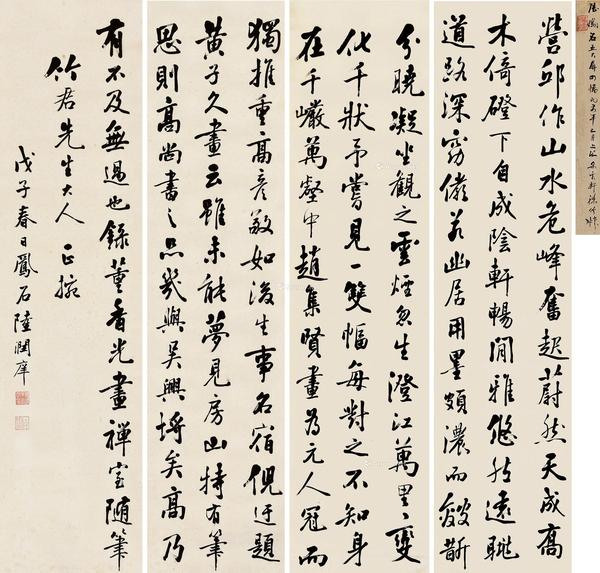 營邱作山水危峰奮起蔚然天成喬
木倚磴下自成陰軒暢閒雅悠然遠眺
道路深窈儼若幽居用墨頗濃而皴斮
分曉凝坐觀之雲煙忽生澄江萬里變
化千狀予嘗見一雙幅每對之不知身
在千巖萬壑中趙集賢畫為元人冠而
獨推重高彥敬如後生事名宿倪迂題
黃子久畫云雖未能夢見房山特有筆
思則高尚書之品幾與吳興埒矣高乃
有不及無過也錄董香光畫禪室隨筆
竹君先生大人正
戊子春日鳳石陸潤庠
陸鳳石